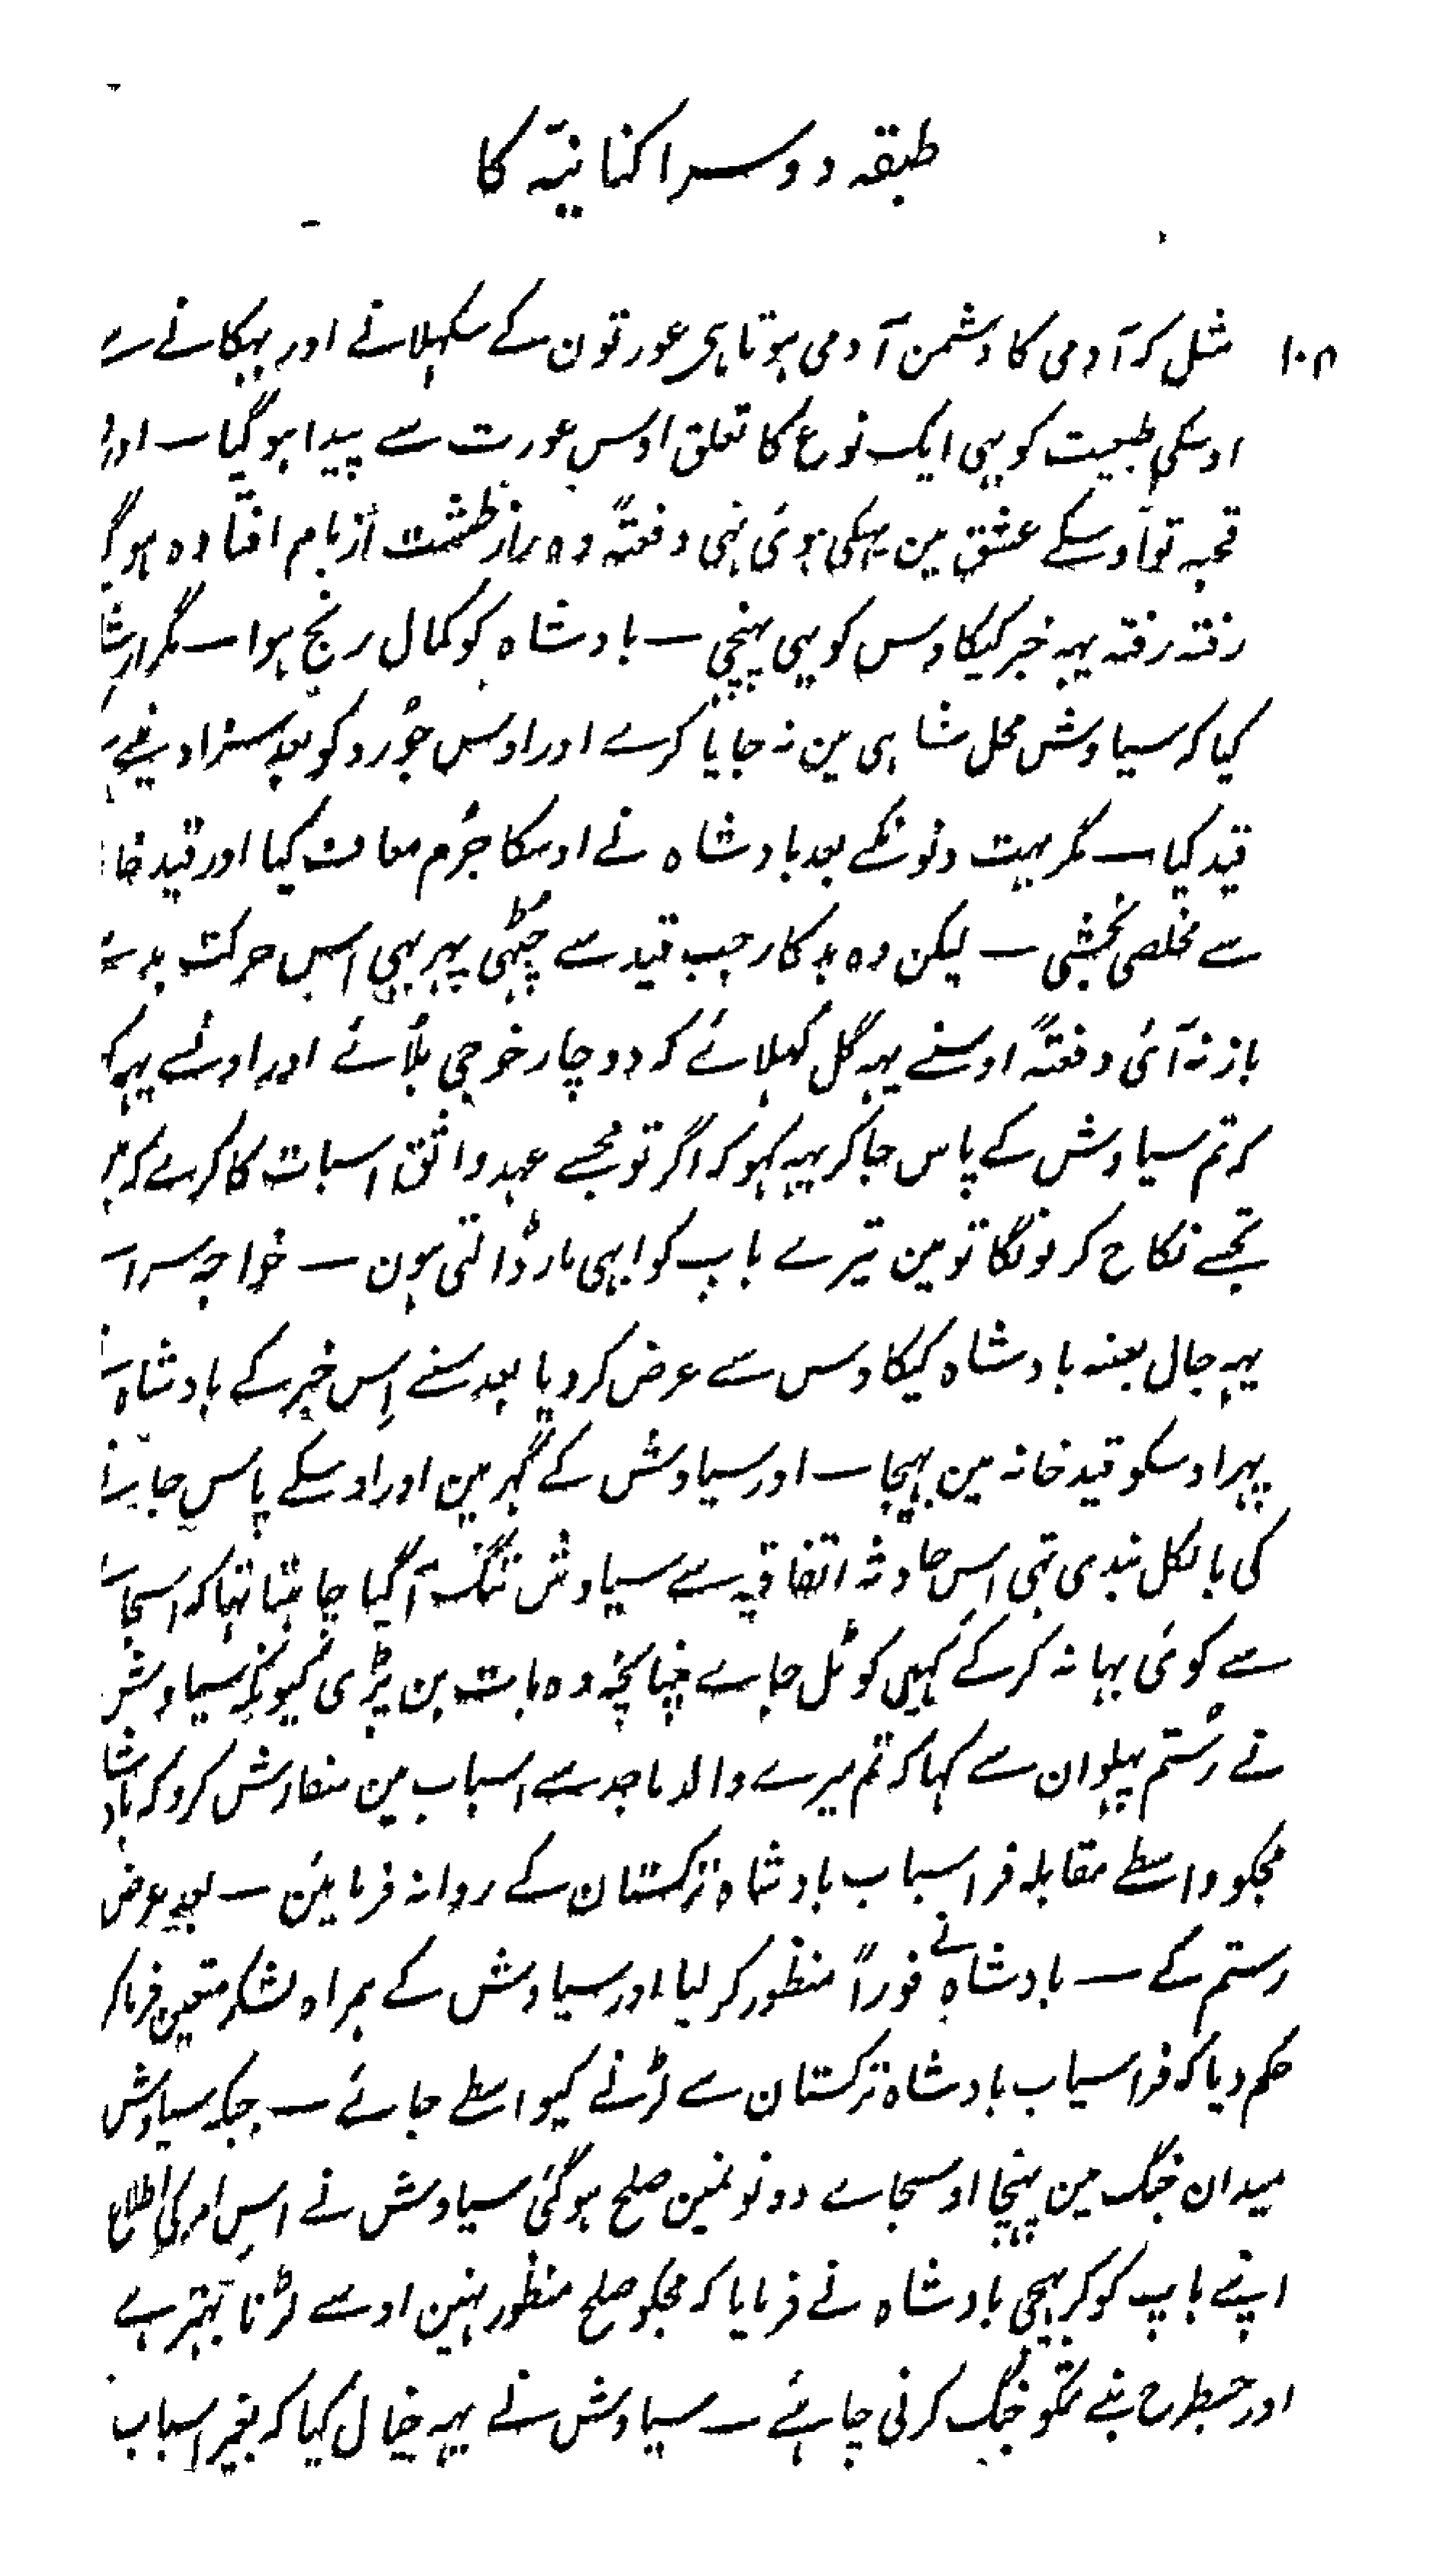 طبقہ دوسرا کنانیّہ کا
۱۰۸ مثل کہ آدمی کا دشمن آدمی ہوتا ہی عورتون کے سکہلانے اور بہکانے سے
اوسکی طبیعت کو بہی ایک نوع کا تعلق اوس عورت سے پیدا ہو گیا — اور
قحبہ تو اوسکے عشق مین بہکی ہوئی تہی دفعتہً وہ راز طشت از بام افتادہ ہو
رفتہ رفتہ یہہ خبر کیکاوس کو بہی پہنچی — بادشاہ کو کمال رنج ہوا — مگر
کیا کہ سیاوش محل شاہی مین نہ جایا کرے اور اوس جورو کو بعد سزا دینے
قید کیا — مگر بہت دنونکے بعد بادشاہ نے اوسکا جرُم معاف کیا اور قید
سے مخلصی بخشی — لیکن وہ بدکار جب قید سے چہٹی پہر بہی اس حرکت بد سے
باز نہ آئی دفعتہً اوسنے یہہ گل کہلائے کہ دو چار خوجی بلاُئے اور اونسے یہہ
کہ تم سیاوش کے پاس جا کر یہہ کہو کہ اگر تو مجہسے عہد واثق اسبات کا کرے کہ
تجہسے نکاح کرونگا تو مین تیرے باپ کو ابہی مار ڈالتی ہون — خواجہ سرا
یہہ حال بعینہ بادشاہ کیکاوس سے عرض کر دیا بعد سننے اِس خبر کے بادشاہ
پہر اوسکو قید خانہ مین بہیجا — اور سیاوش کے گہر مین اور اوسکے پاس جانے
کی بالکل بندی تہی اس حادثہ اتفاقیہ سے سیاوش تنگ آ گیا چاہتا تہا کہ اسجا
سے کوئی بہانہ کر کے کہیں کو ٹل جاے چنانچہ وہ بات بن پڑی کیونکہ سیاوش
نے رُستم پہلوان سے کہا کہ تم میرے والد ماجد سے اسباب مین سفارش کرو کہ بادشا
مجکو واسطے مقابلہ فراسیاب بادشاہ ترکستان کے روانہ فرمائین — بعد عرض
رستم کے — بادشاہ نے فوراً منظور کر لیا اور سیاوش کے ہمراہ لشکر متعین فرما کر
حکم دیا کہ فراسیاب بادشاہ ترکستان سے لڑنے کیواسطے جائے — جبکہ سیاوش
میدان جنگ مین پہنچا اوسجاے دونونمین صلح ہو گئی سیاوش نے اسِ امر کی اطلاع
اپنے باپ کو کر بہیجی بادشاہ نے فرمایا کہ مجکو صلح منظور نہین اوسے لڑنا بہتر ہے
اور جسطرح بنے تمکو جنگ کرنی چاہئے — سیاوش نے یہہ خیال کیا کہ بغیر اسباب